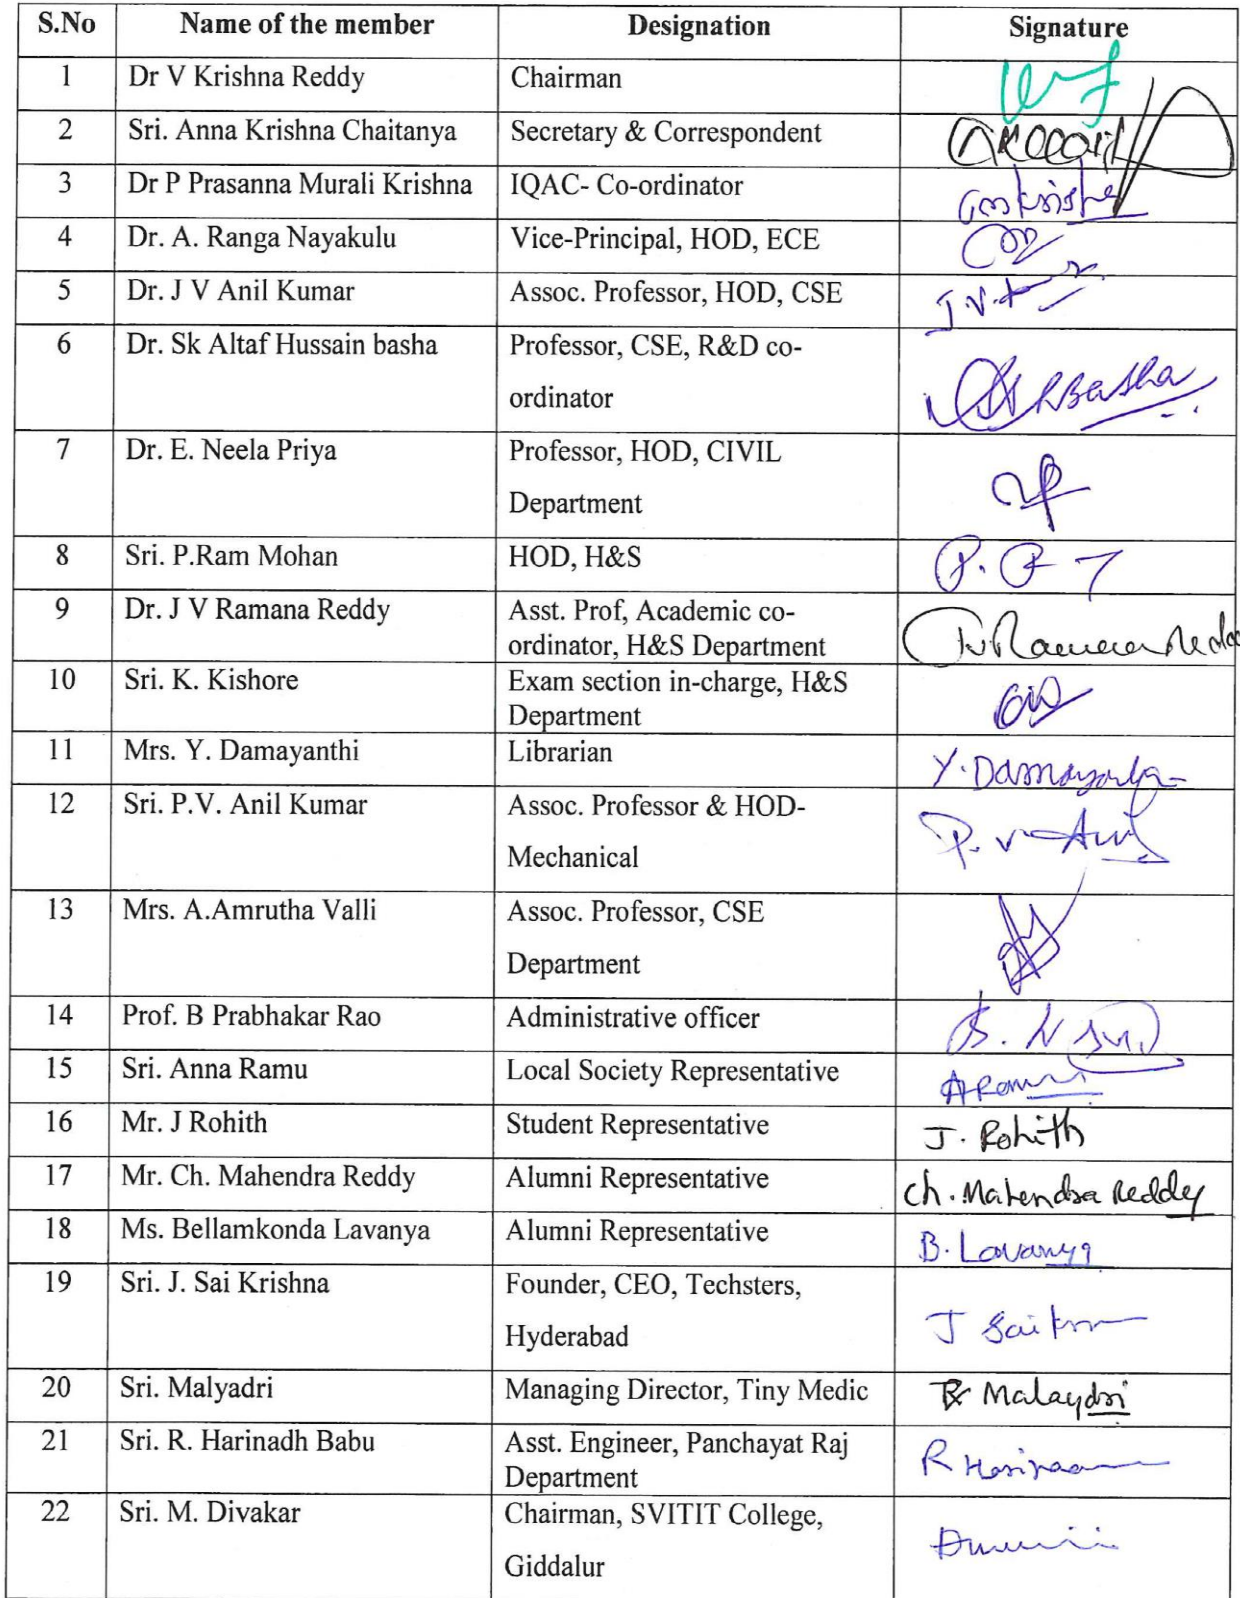 S.No Name of the member Designation Signature
1 Dr V Krishna Reddy Chairman
2 Sri. Anna Krishna Chaitanya Secretary & Correspondent
3 Dr P Prasanna Murali Krishna IQAC- Co-ordinator
4 Dr. A. Ranga Nayakulu Vice-Principal, HOD, ECE
5 Dr. J V Anil Kumar Assoc. Professor, HOD, CSE
6 Dr. Sk Altaf Hussain basha Professor, CSE, R&D co-
ordinator
7 Dr. E. Neela Priya Professor, HOD, CIVIL
Department
8 Sri. P.Ram Mohan HOD, H&S
9 Dr. J V Ramana Reddy Asst. Prof, Academic co-
ordinator, H&S Department
10 Sri. K. Kishore Exam section in-charge, H&S
Department
11 Mrs. Y. Damayanthi Librarian
12 Sri. P.V. Anil Kumar Assoc. Professor & HOD-
Mechanical
13 Mrs. A.Amrutha Valli Assoc. Professor, CSE
Department
14 Prof. B Prabhakar Rao Administrative officer
15 Sri. Anna Ramu Local Society Representative
16 Mr. J Rohith Student Representative J. Rohith
17 Mr. Ch. Mahendra Reddy Alumni Representative Ch. Mahendra Reddy
18 Ms. Bellamkonda Lavanya Alumni Representative B. Lavanya
19 Sri. J. Sai Krishna Founder, CEO, Techsters,
Hyderabad
20 Sri. Malyadri Managing Director, Tiny Medic Malaydri
21 Sri. R. Harinadh Babu Asst. Engineer, Panchayat Raj
Department
22 Sri. M. Divakar Chairman, SVITIT College,
Giddalur